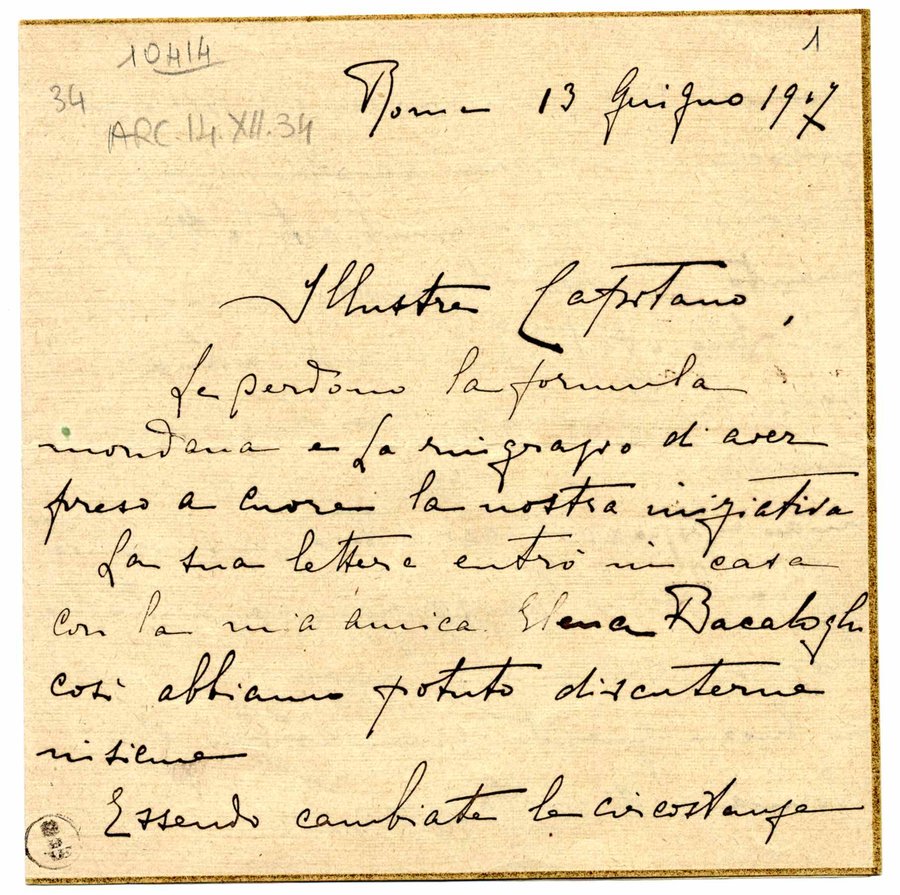 10414
1
34
Roma 13 Giugno 1917
ARC. 14. XII. 34
Illustre Capitano,
Le perdono la formula
mondana e La ringrazio d'aver
preso a cuore la nostra iniziativa
La sua lettera entrò in casa
con la mia amica Elena Bacaloglu
così abbiamo potuto discuterne
insieme
Essendo cambiate le circostanze